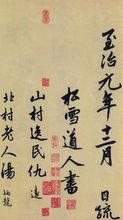 至治元年十二月　日疏
松雪道人書
山村逸民仇遠
北村老人湯炳龍